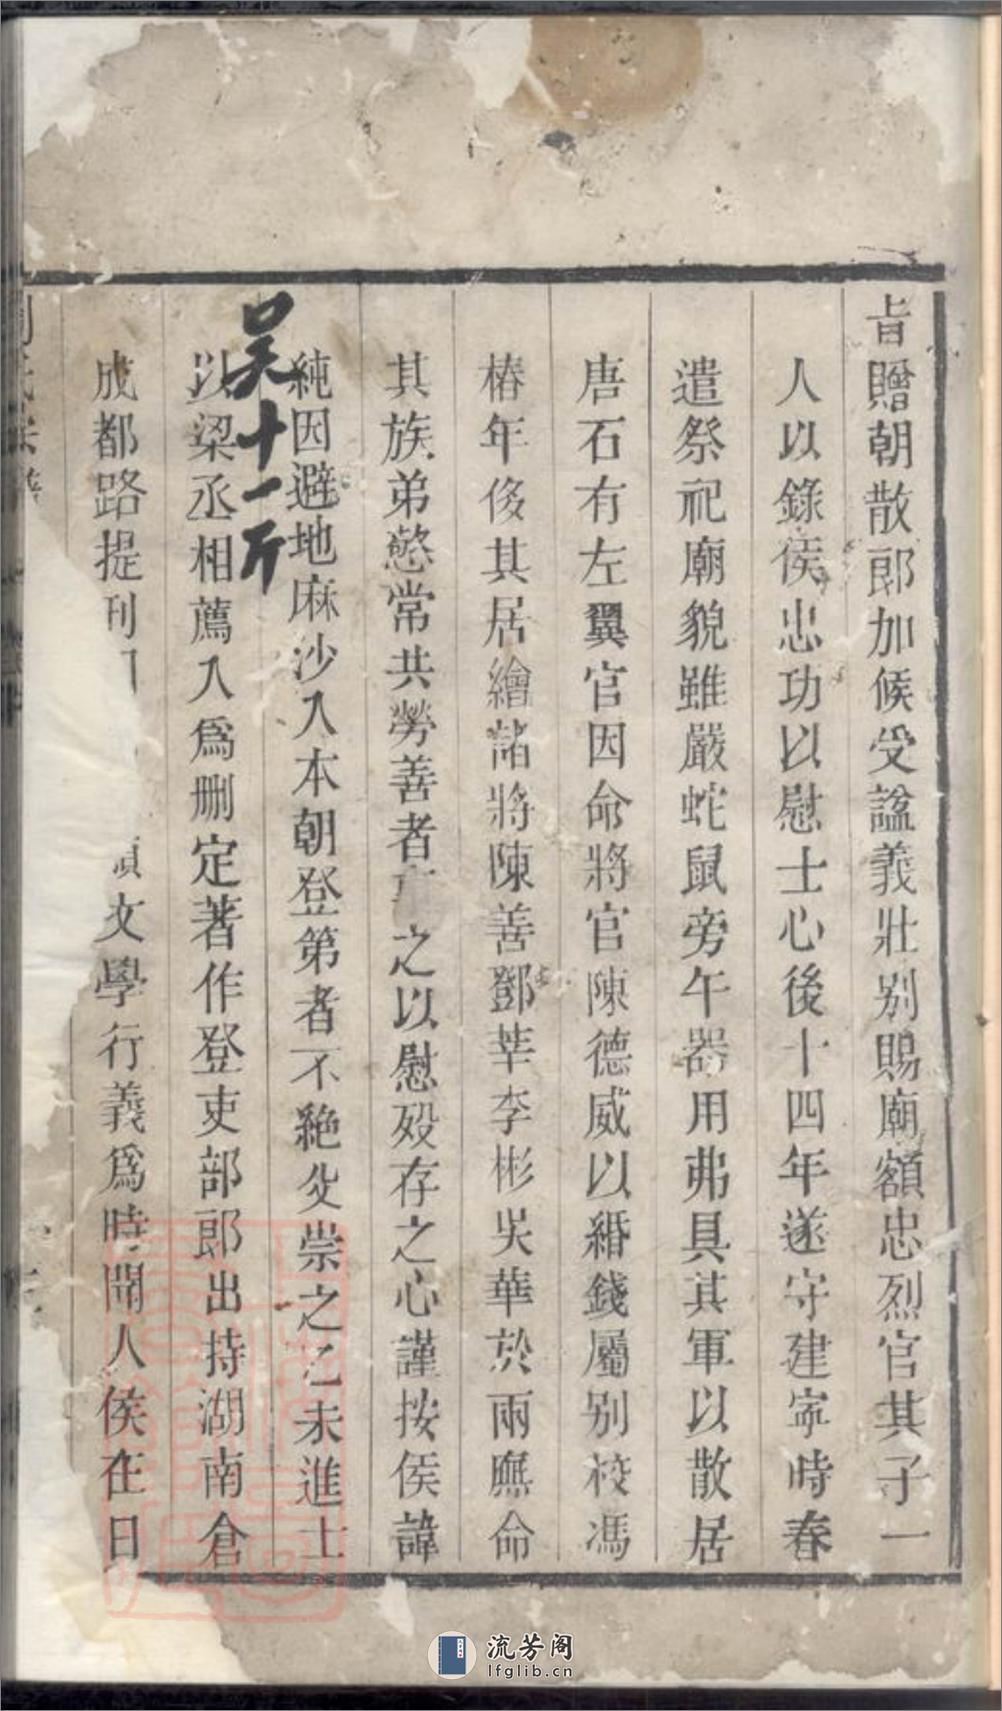 旨贈朝散郎加候受諡義壯别賜廟額忠烈官其子一
人以錄侯忠功以慰士心後十四年遂守建寧時春
遣祭祀廟貌雖嚴蛇鼠旁午器用弗具其軍以散居
唐石有左翼官因命將官陳德威以緡錢屬别校馮
椿年俢其居繪諸將陳善鄧莘李彬吳華於兩廡命
其族弟慤常共勞善者之以慰殁存之心謹按侯諱
純因避地麻沙入本朝登第者不絶父崇之乙未進士
吴十一斤
以梁丞相薦入爲删定著作登吏部郎出持湖南倉
成都路提刑文學行義爲時聞人侯在日
流芳阁
lfglib.cn